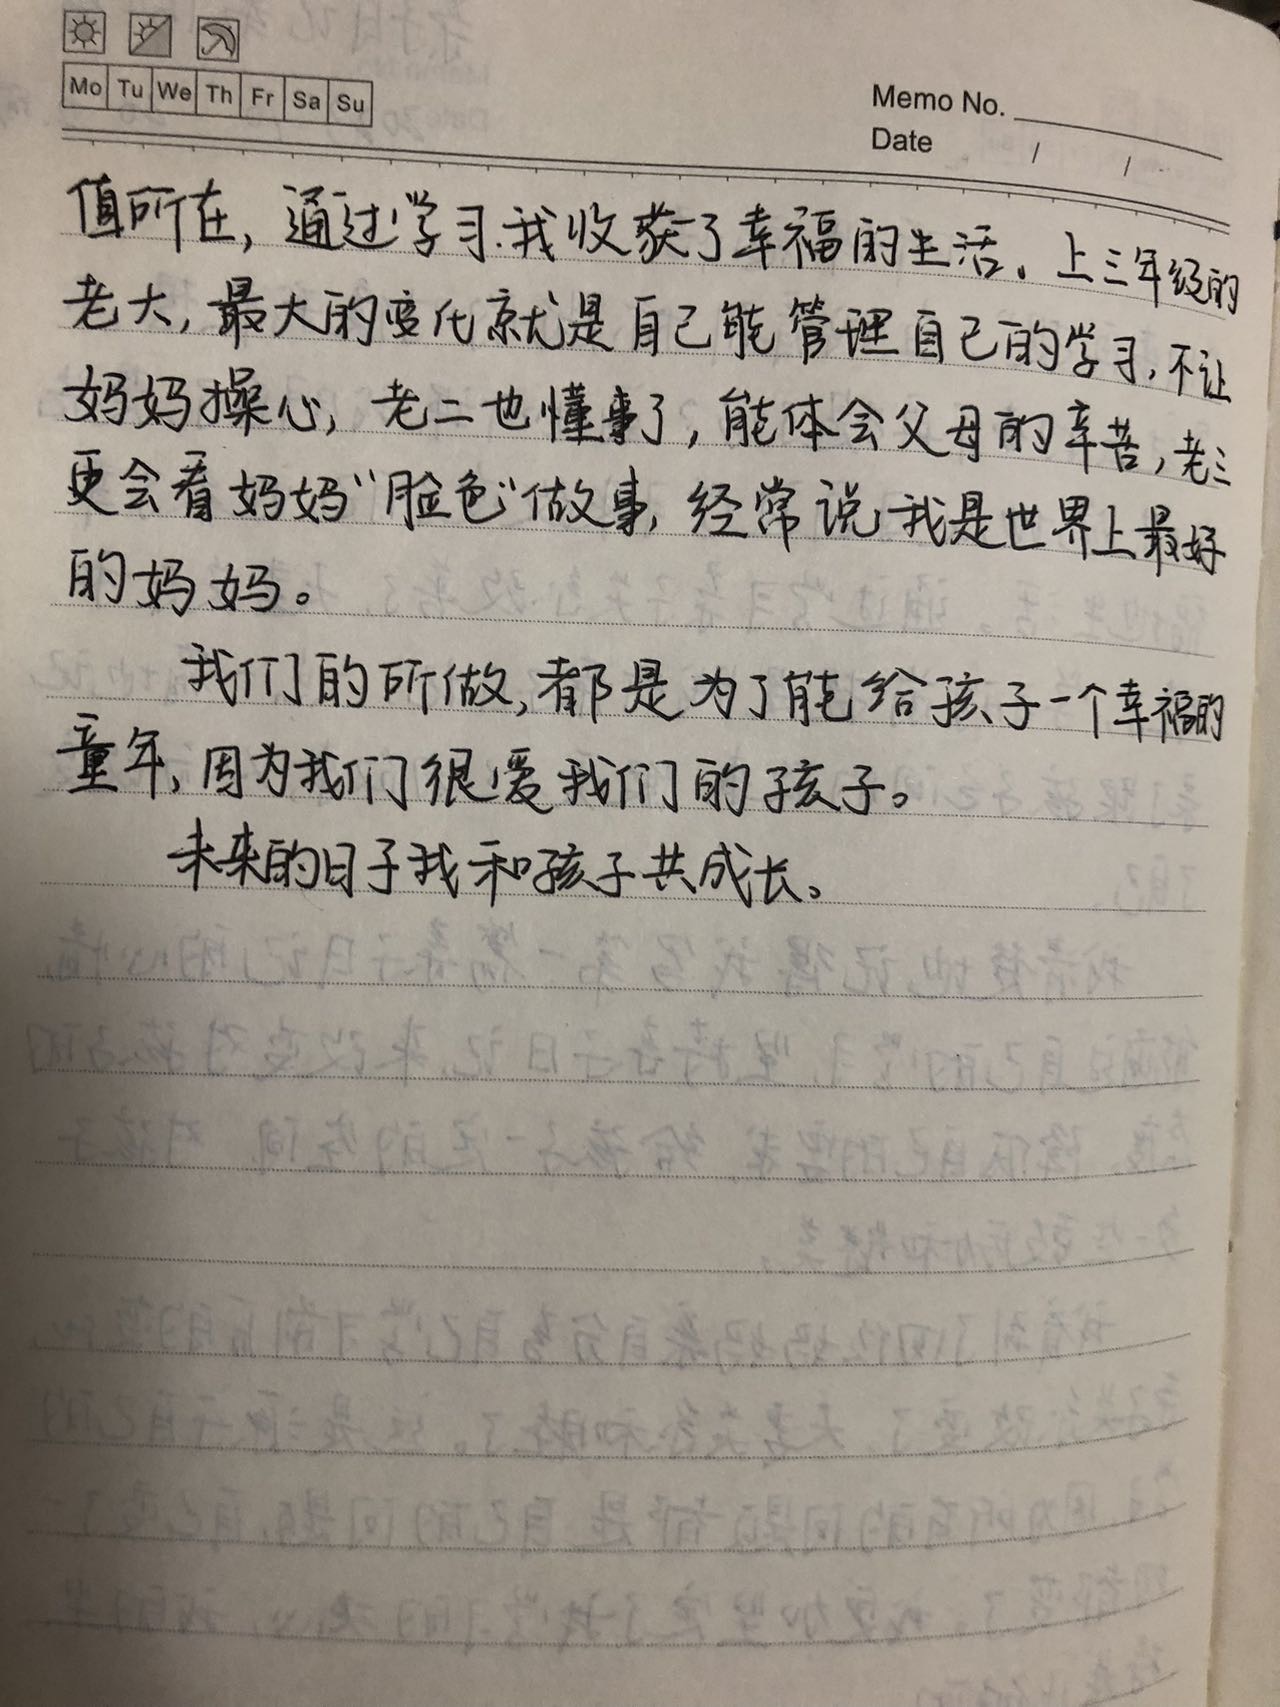 Mo Tu We Th Fr Sa Su
Memo No.
Date / /
值所在，通过学习.我收获了幸福的生活。上三年级的
老大，最大的变化就是自己能管理自己的学习，不让
妈妈操心，老二也懂事了，能体会父母的辛苦，老三
更会看妈妈“脸色”做事，经常说我是世界上最好
的妈妈。
我们的所做，都是为了能给孩子一个幸福的
童年，因为我们很爱我们的孩子。
未来的日子我和孩子共成长。